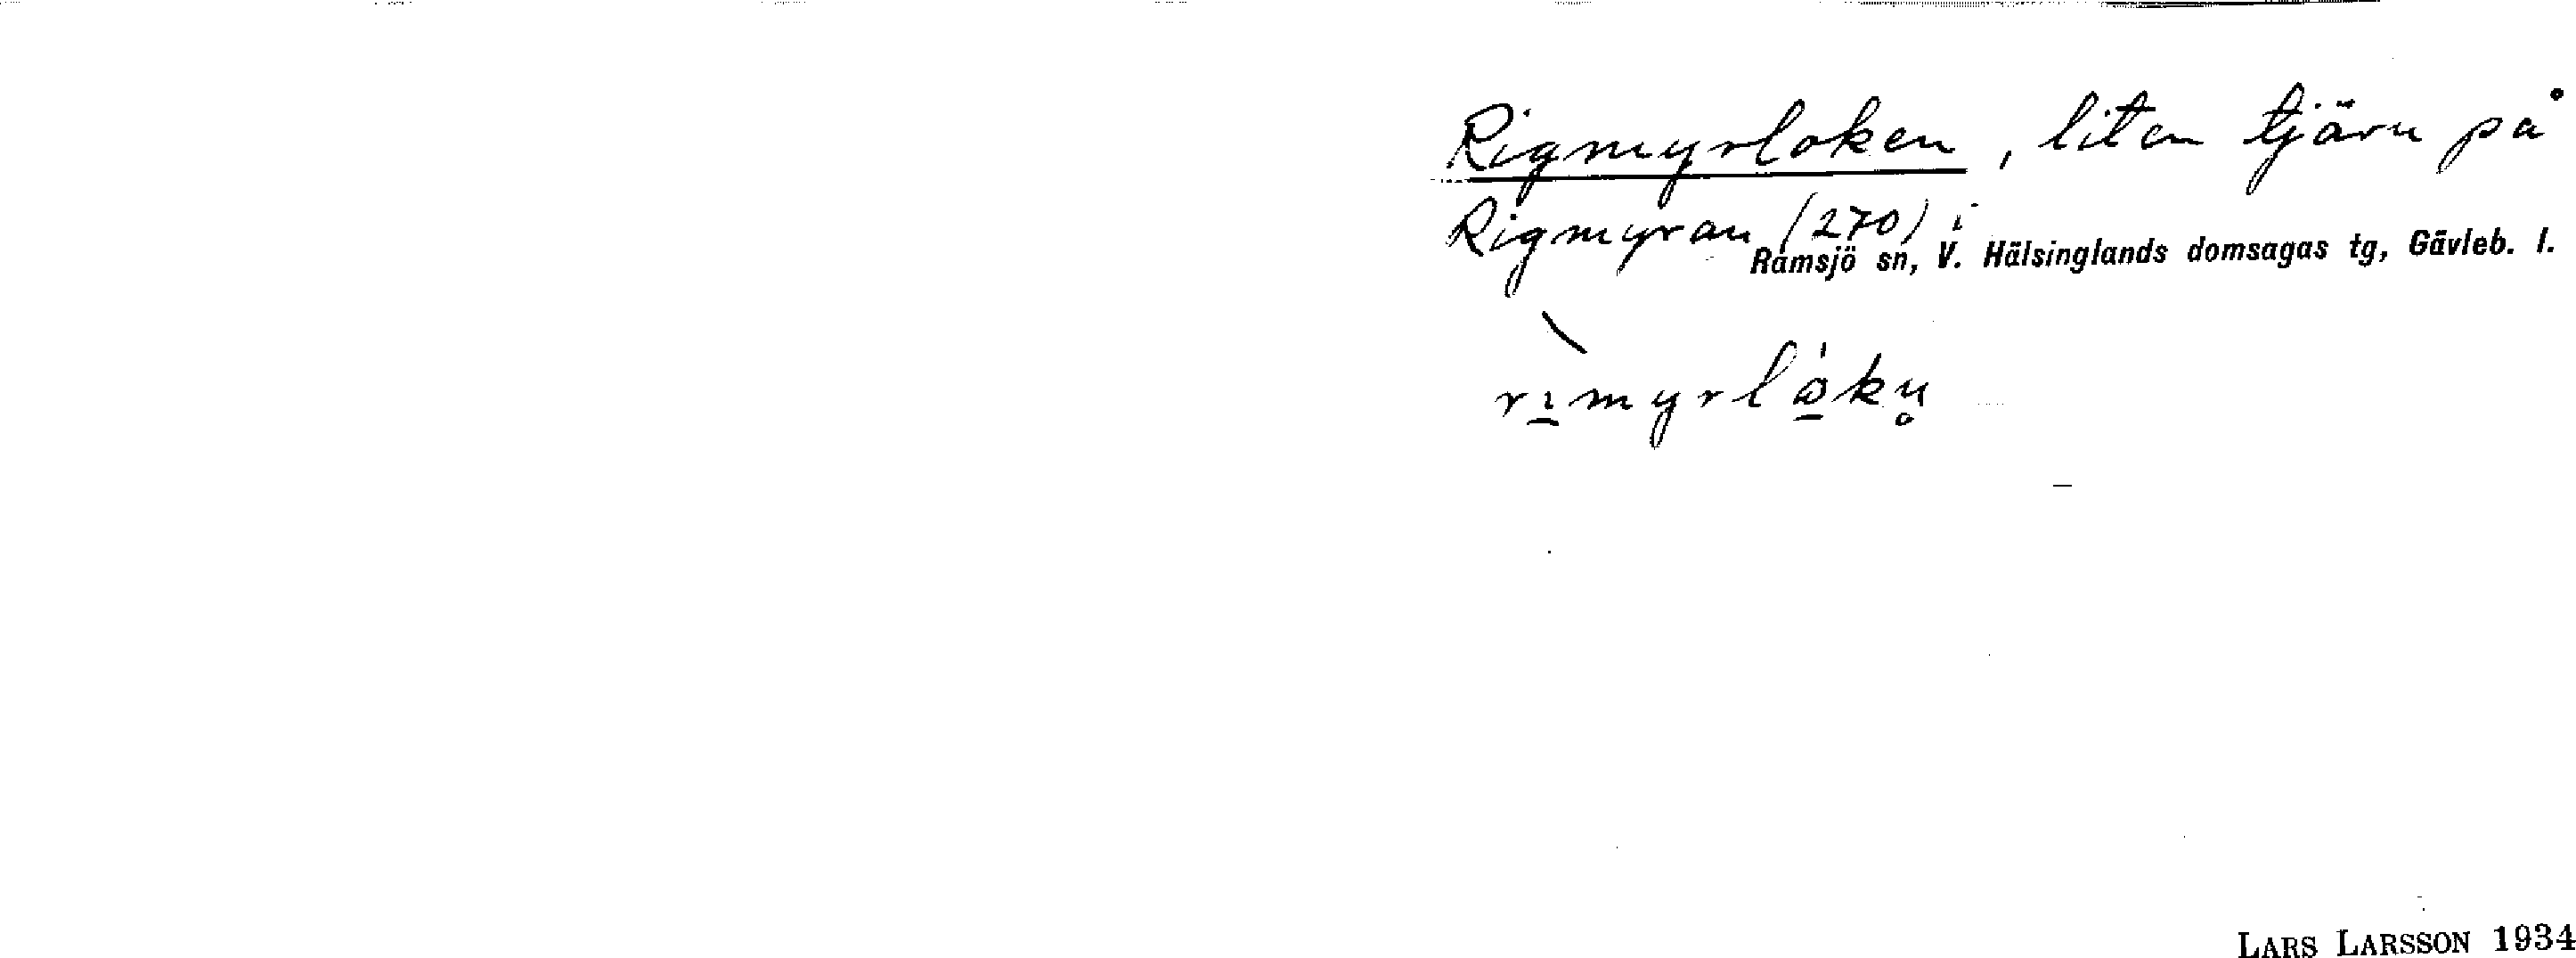 Rigmyrloken, liten tjärn på
Rigmyran (270) i
Ramsjö sn, V. Hälsinglands domsagas tg, Gävleb. l.
LARS LARSSON 1934